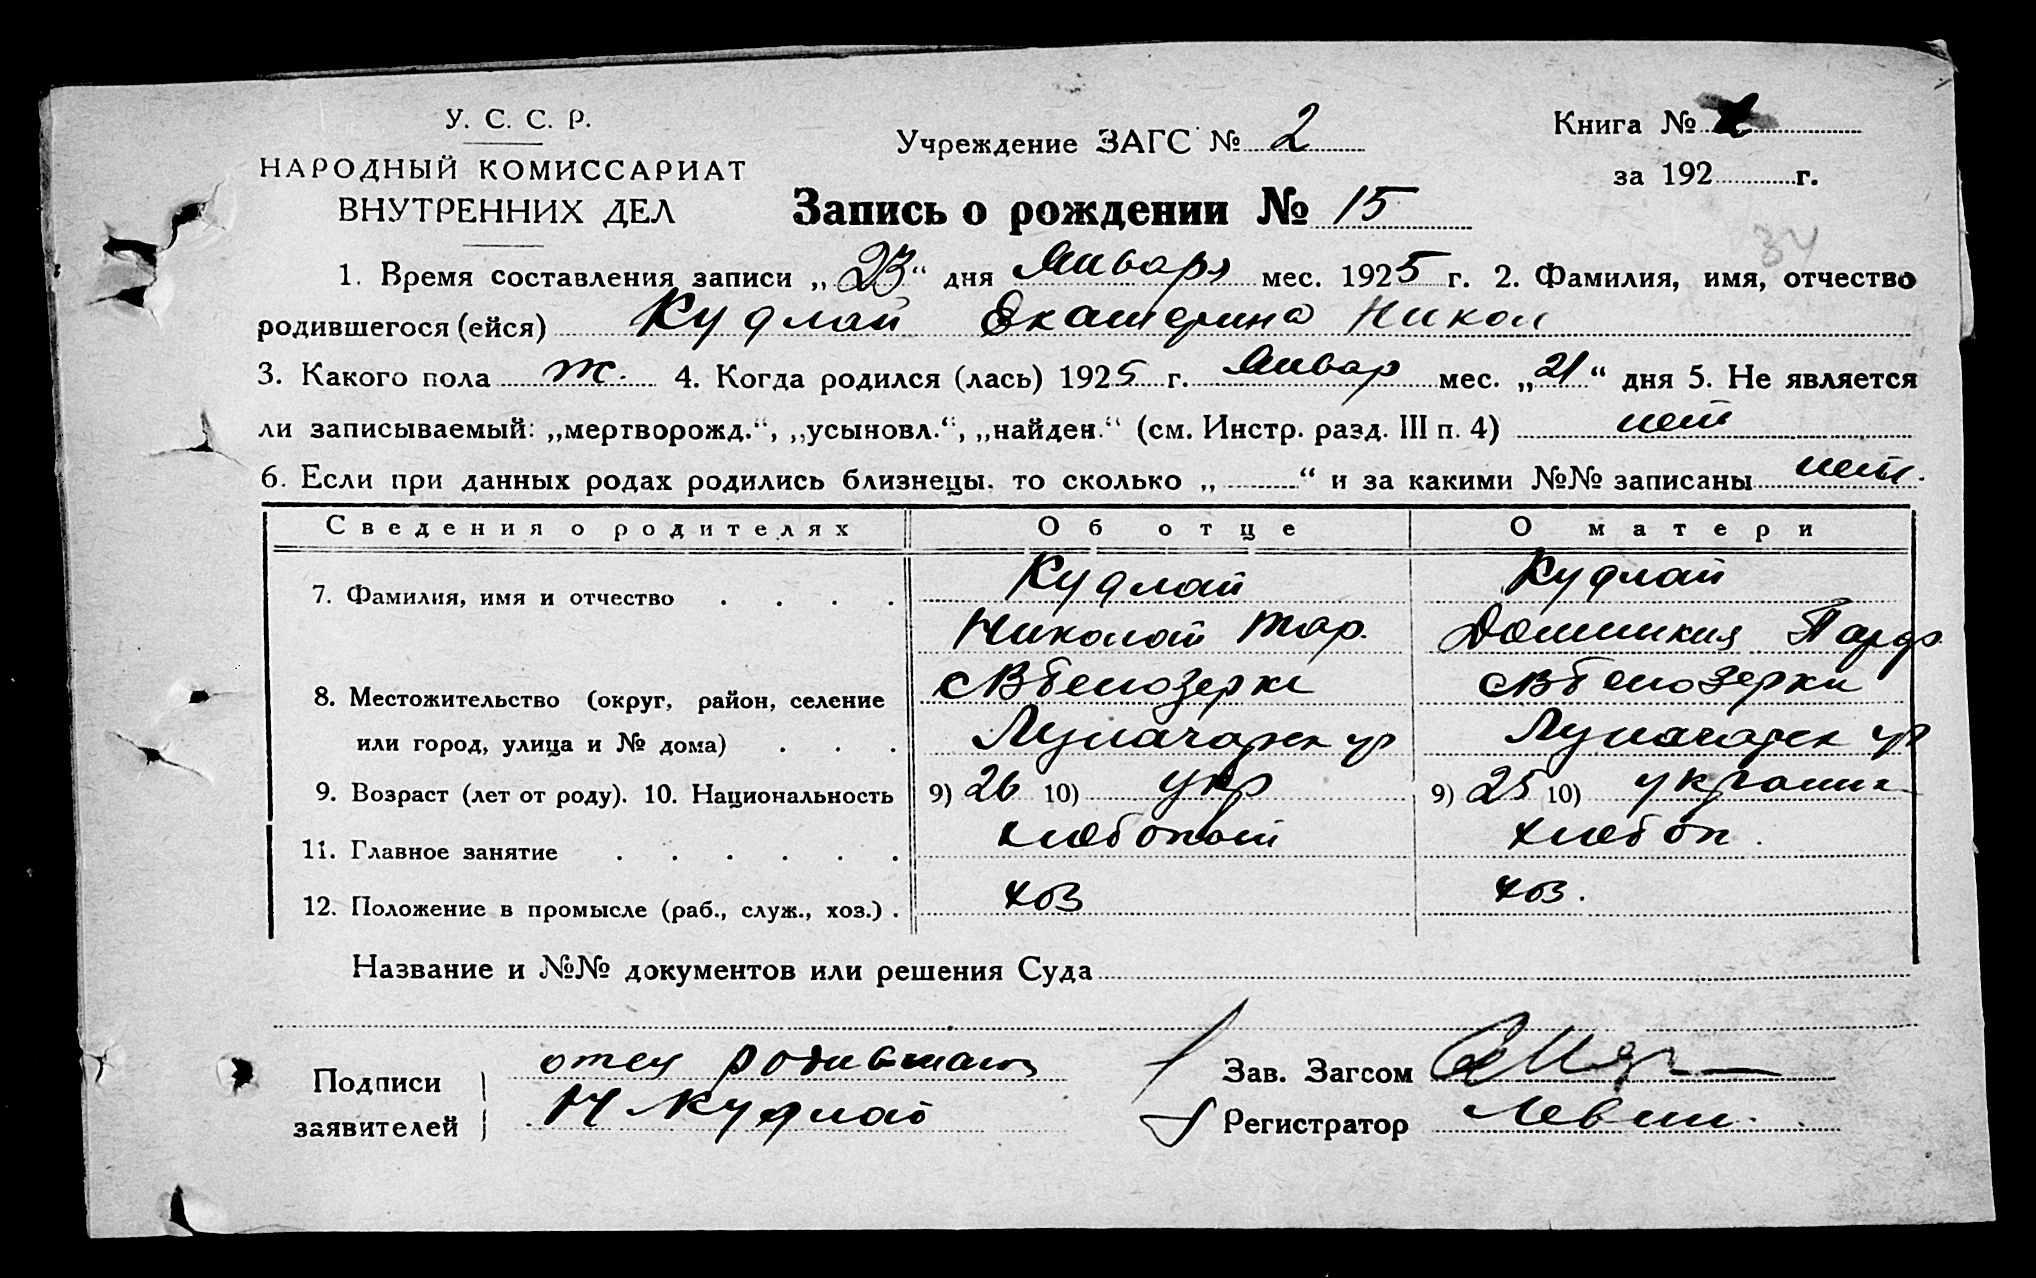 У. С. С. Р.
НАРОДНЫЙ КОМИССАРИАТ
ВНУТРЕННИХ ДЕЛ
Учреждение ЗАГС № 2
Книга №
за 192 г.
Запись о рождении № 15
34
1. Время составления записи „23“ дня Января мес. 1925 г. 2. Фамилия, имя, отчество
родившегося (ейся) Кудлай Екатерина Никол
3. Какого пола ж. 4. Когда родился (лась) 1925 г. Январ мес. „21“ дня 5. Не является
ли записываемый: „мертворожд.“, „усыновл.“, „найден.“ (см. Инстр. разд. III п. 4) нет
6. Если при данных родах родились близнецы, то сколько „ “ и за какими №№ записаны нет.
Сведения о родителях Об отце О матери
7. Фамилия, имя и отчество Кудлай Кудлай
Николай Мар. Домникия Парф.
8. Местожительство (округ, район, селение сВ белозерки сВ белозерки
или город, улица и № дома) Луначарск ул Луначарск ул
9. Возраст (лет от роду). 10. Национальность 9) 26 10) укр 9) 25 10) украинк
11. Главное занятие хлебопаш хлебоп.
12. Положение в промысле (раб., служ., хоз.) хоз хоз.
Название и №№ документов или решения Суда
Подписи отец
заявителей Н Кудлай
Зав. Загсом
Регистратор Левин.